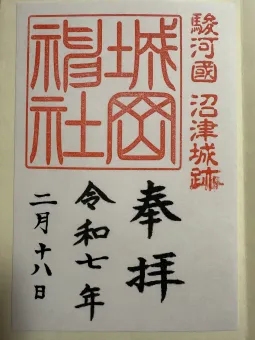 駿河國 沼津城跡
城岡神社
奉拝
令和七年
二月十八日